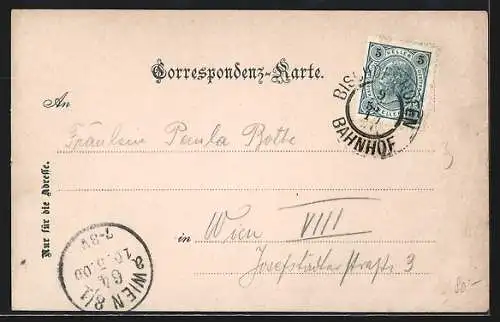 Correspondenz-Karte.
5 HELLER 5
BISCHOFSHOFEN
BAHNHOF
An
Fräulein Paula Botte
Nur für die Adresse.
in Wien VIII
Josefstädterstraße 3
WIEN 8/1
64
10.5.00
7-8V
80.-